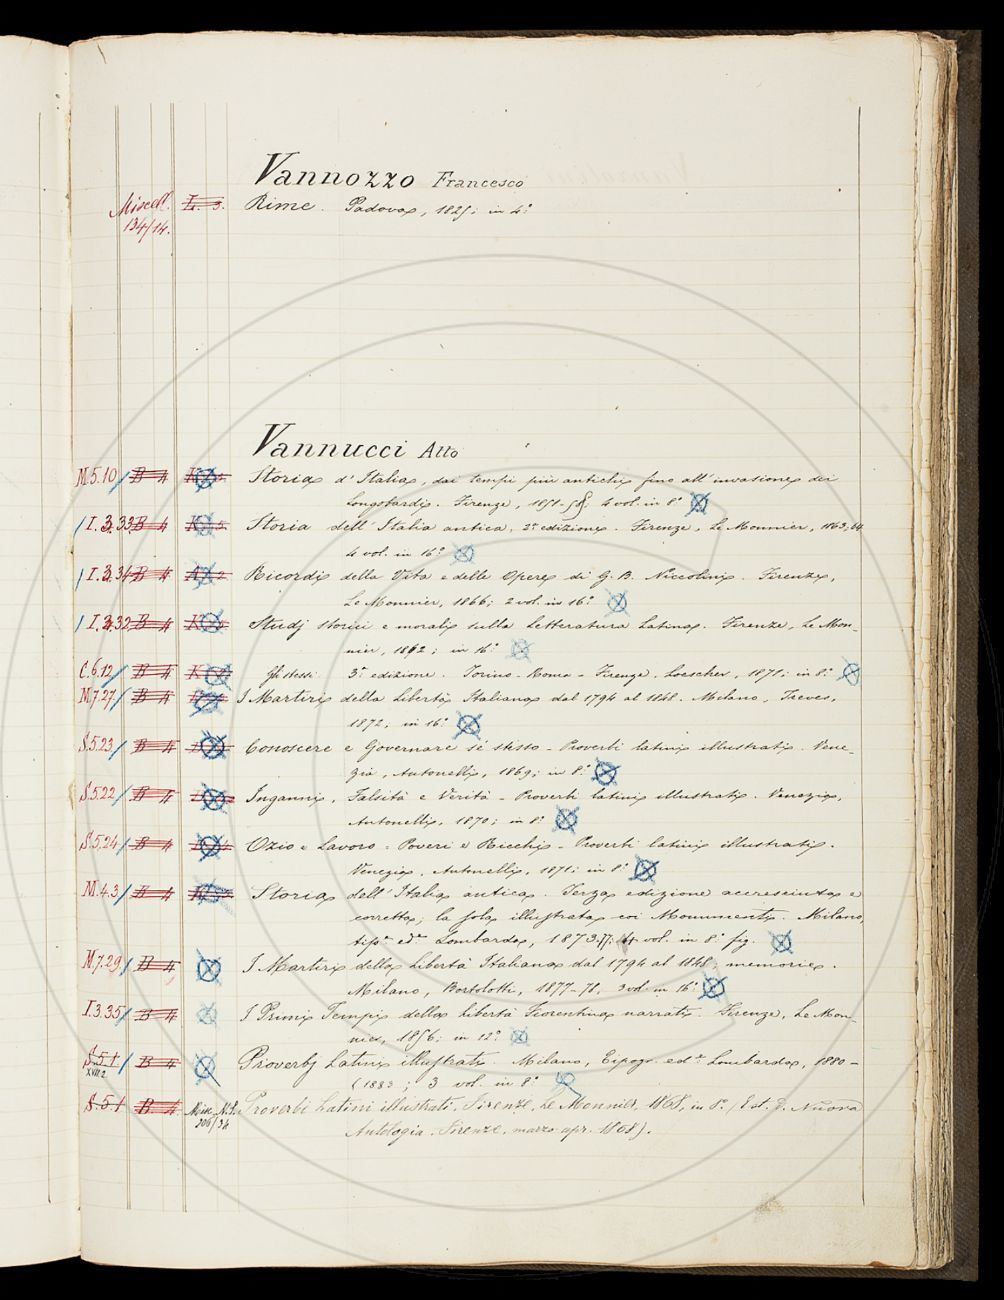 Vannozzo Francesco
Miscell. L. 3. Rime. Padova, 1825; in 4°
134/14.
Vannucci Atto
M.5.10 B 4 Storia d'Italia, dai tempi più antichi fino all'invasione dei
Longobardi. Firenze, 1851-58, 4 vol. in 8°
I.3.33 B 4 Storia dell'Italia antica, 2ª edizione. Firenze, Le Monnier, 1863,64
4 vol. in 16°
I.3.34 B 4 Ricordi della Vita e delle Opere di G. B. Niccolini. Firenze,
Le Monnier, 1866; 2 vol. in 16°
I.3.32 B 4 Studj storici e morali sulla Letteratura Latina. Firenze, Le Mon-
nier, 1862; in 16°
C.6.12 B 4 Gli stessi 3ª edizione. Torino-Roma-Firenze, Loescher, 1871; in 8°
M.7.27 B 4 I Martiri della libertà Italiana dal 1794 al 1848. Milano, Treves,
1872, in 16°
S.5.23 B 4 Conoscere e Governare sè stesso - Proverbi latini illustrati. Vene-
zia, Antonelli, 1869; in 8°
S.5.22 B 4 Inganni, Falsità e Verità - Proverbi latini illustrati. Venezia,
Antonelli, 1870; in 8°
S.5.24 B 4 Ozio e Lavoro - Poveri e Ricchi - Proverbi latini illustrati.
Venezia, Antonelli, 1871; in 8°
M.4.3 B 4 Storia dell'Italia antica. Terza edizione accresciuta e
corretta; la sola illustrata coi Monumenti. Milano,
tipª edª Lombarda, 1873-77; 4 vol. in 8° fig.
M.7.29 B 4 I Martiri della libertà Italiana dal 1794 al 1848, memorie.
Milano, Bortolotti, 1877-78, 3 vol. in 16°
I.3.35 B 4 I Primi Tempi della libertà Fiorentina narrati. Firenze, Le Mon-
nier, 1856; in 12°
S.5.1 B 4 Proverbj Latini illustrati. Milano, Tipogr. edª Lombarda, 1880-
XVII.2 (1883; 3 vol. in 8°
S.5.1 B 4 Misc. N.S. Proverbi Latini illustrati. Firenze, Le Monnier, 1868, in 8°. (Est. d. Nuova
206/34 Antologia. Firenze, marzo-apr. 1868).